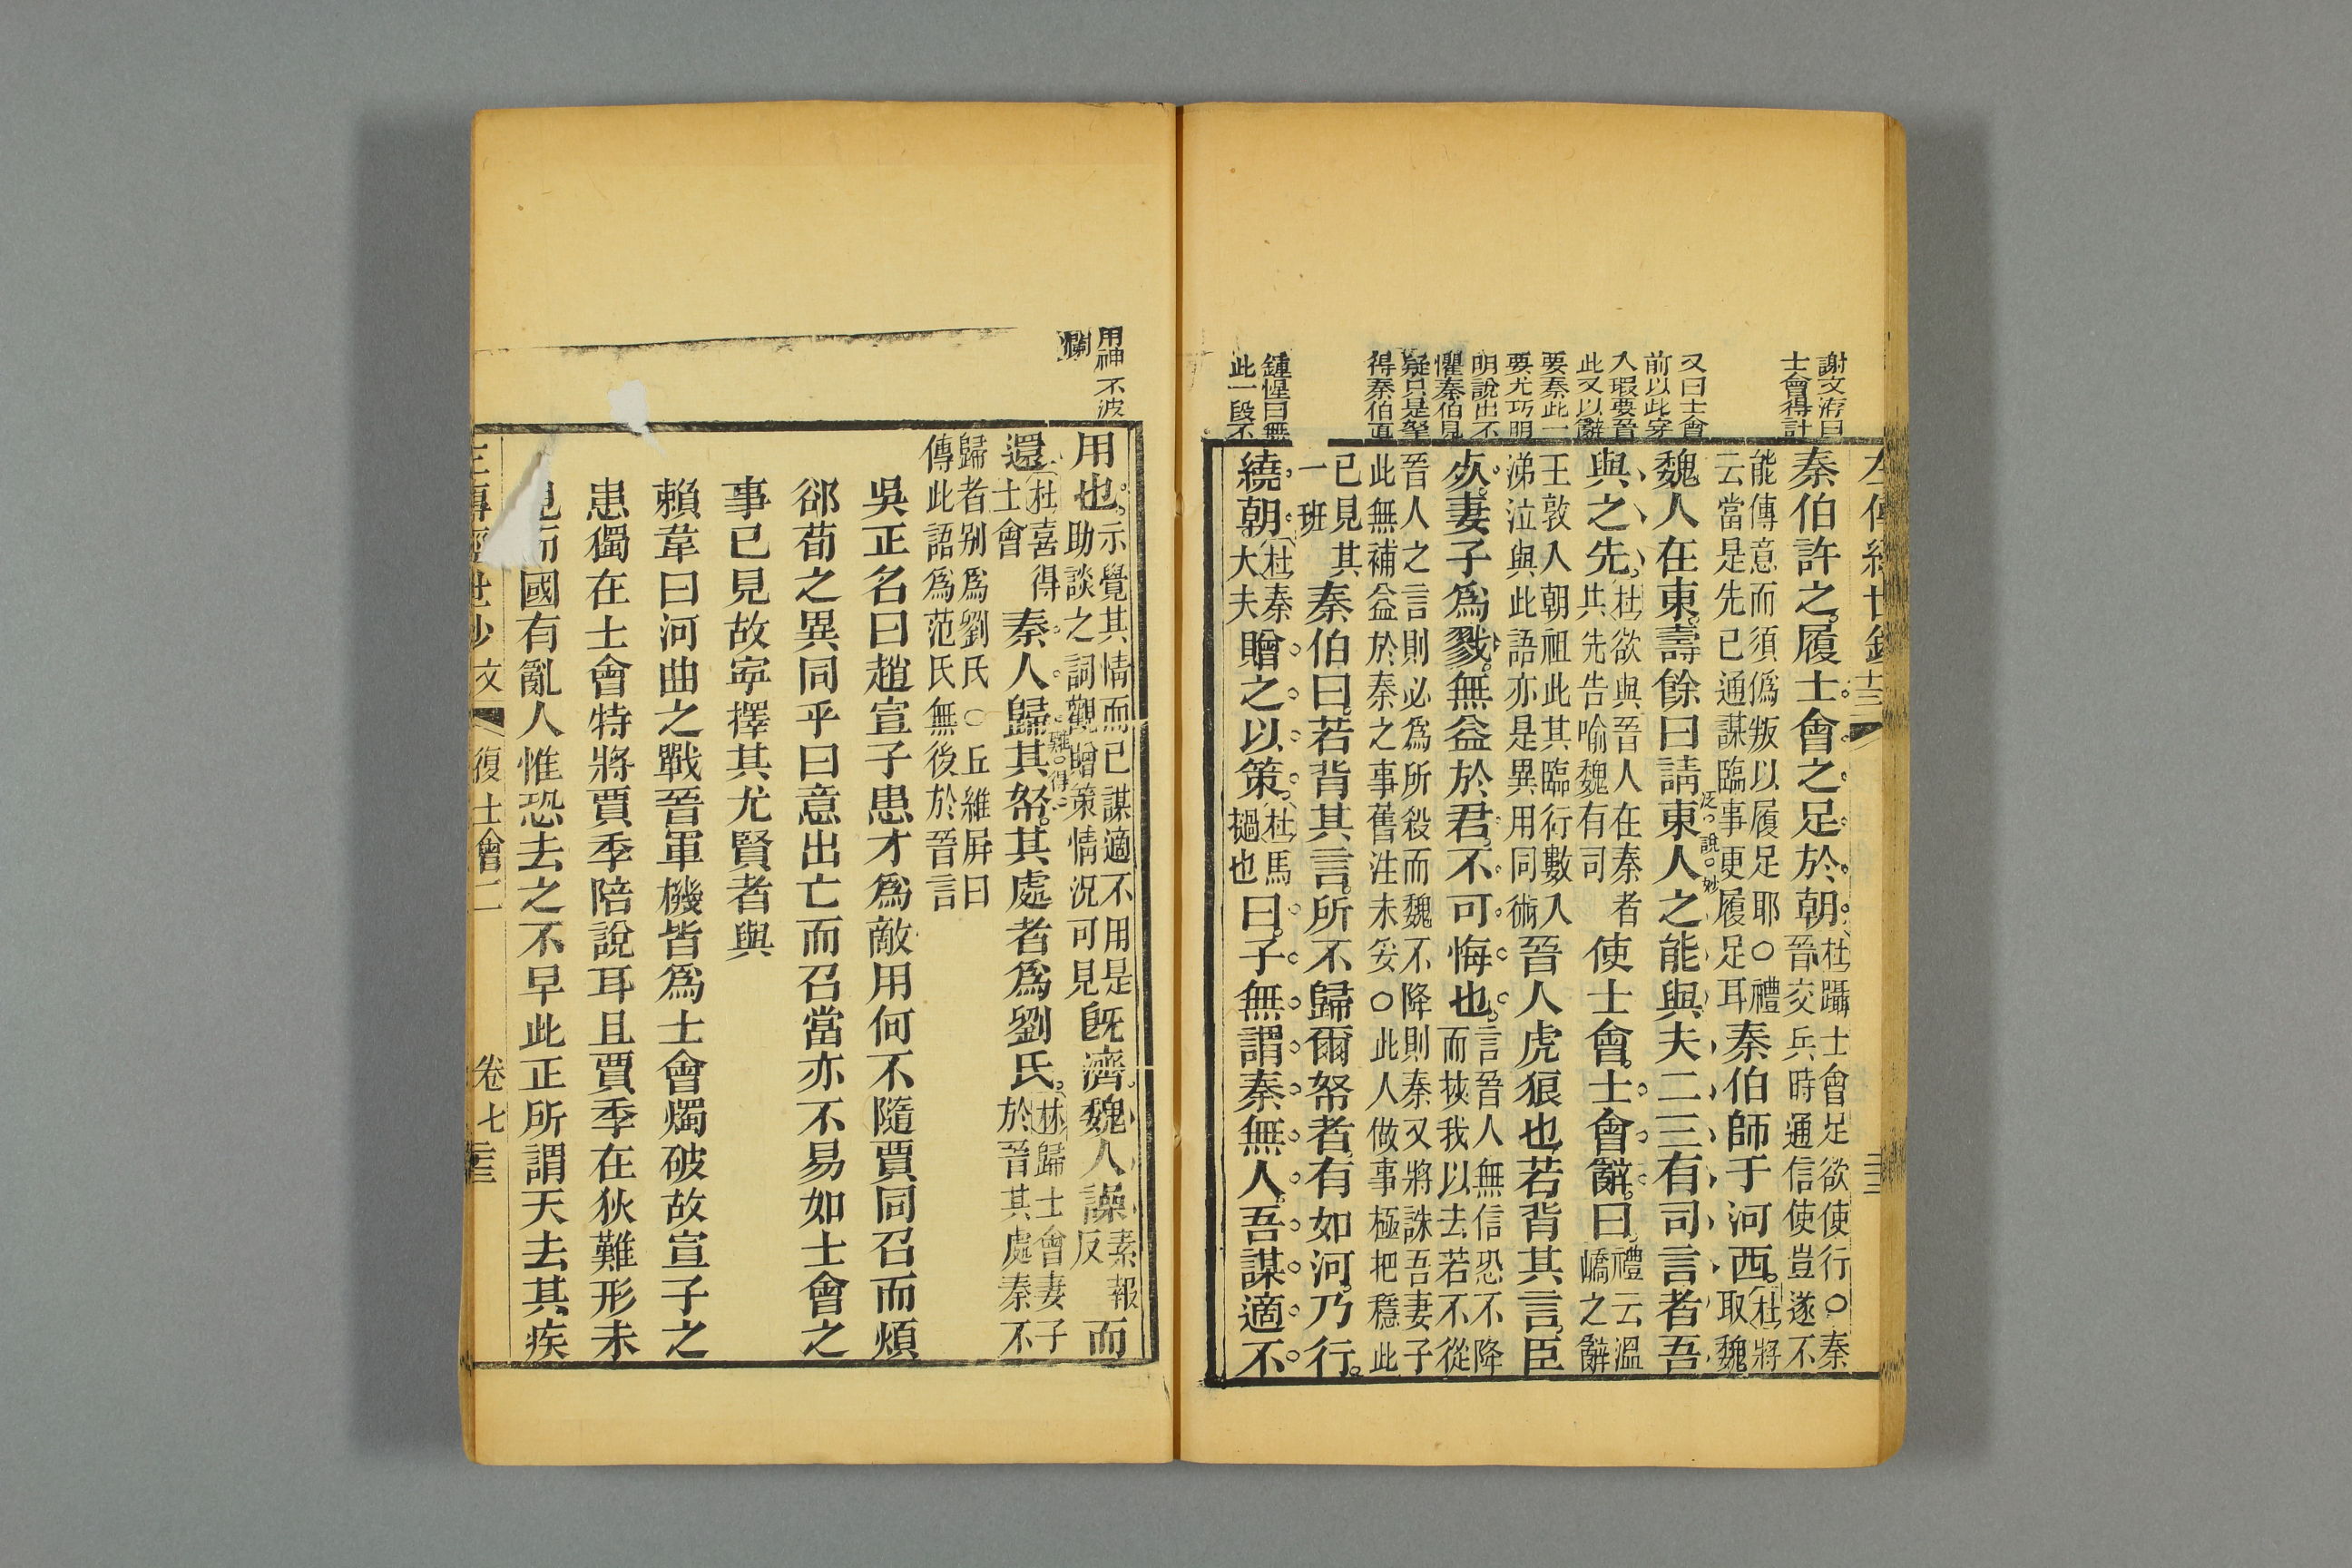 謝文洊曰
士會得計
又曰士會
前以此穿
入瑕要晉
此又以辭
要秦此一
要尤巧明
明說出不
懼秦伯見
疑只是拏
得秦伯直
鍾惺曰無
此一段不
秦伯許之履士會之足於朝
杜躡士會足欲使行○秦
晉交兵時通信使豈遂不
能傳意而須僞叛以履足耶○禮
云當是先已通謀臨事更履足耳
秦伯師于河西
杜將
取魏
魏人在東壽餘曰請東人之能與夫二三有司言者吾
泛說妙
與之先
杜欲與晉人在秦者
共先告喻魏有司
使士會士會辭曰
禮云溫
嶠之辭
王敦入朝祖此其臨行數入
涕泣與此語亦是異用同術
晉人虎狼也若背其言臣
死妻子爲戮無益於君不可悔也
言晉人無信恐不降
而挾我以去若不從
晉人之言則必爲所殺而魏不降則秦又將誅吾妻子
此無補益於秦之事舊注未妥○此人做事極把穩此
已見其
一班
秦伯曰若背其言所不歸爾帑者有如河乃行
繞朝
杜秦
大夫
贈之以策
杜馬
檛也
曰子無謂秦無人吾謀適不
用神不波
瀾
用也
示覺其情而已謀適不用是
助談之詞觀贈策情況可見
旣濟魏人譟
素報
反
而
還
杜喜得
士會
秦人歸其帑其處者爲劉氏
難得
林歸士會妻子
於晉其處秦不
歸者別爲劉氏○丘維屛曰
傳此語爲范氏無後於晉言
吳正名曰趙宣子患才爲敵用何不隨賈同召而煩
郤荀之異同乎曰意出亡而召當亦不易如士會之
事已見故寧擇其尤賢者與
賴韋曰河曲之戰晉軍機皆爲士會燭破故宣子之
患獨在士會特將賈季陪說耳且賈季在狄難形未
見而國有亂人惟恐去之不早此正所謂天去其疾
復士會二
卷七